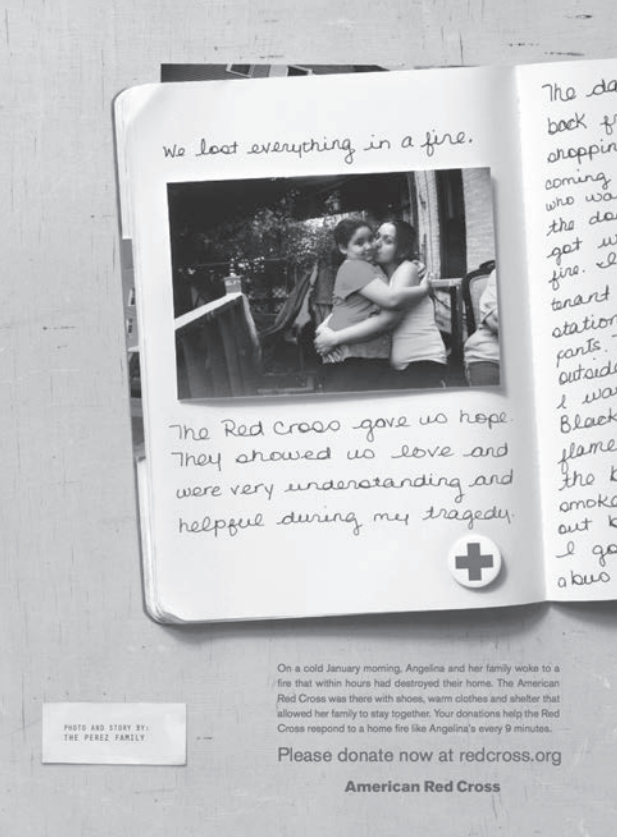 We lost everything in a fire.
The Red Cross gave us hope.
They showed us love and
were very understanding and
helpful during my tragedy.
The da
back f
shoppin
coming
who wa
the do
got w
fire. I
tenant
station
pants.
outside
I wa
Black
flame
the b
smoke
out b
I go
abus
On a cold January morning, Angelina and her family woke to a
fire that within hours had destroyed their home. The American
Red Cross was there with shoes, warm clothes and shelter that
allowed her family to stay together. Your donations help the Red
Cross respond to a home fire like Angelina's every 9 minutes.
PHOTO AND STORY BY:
THE PEREZ FAMILY
Please donate now at redcross.org
American Red Cross